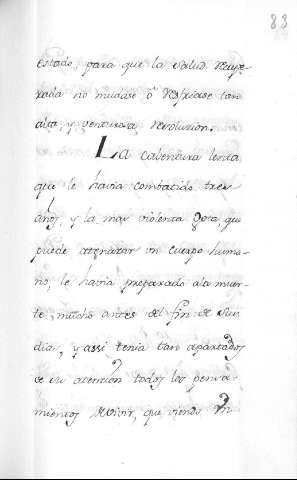 83
estado, para que la salud recupe-
rada no mudase ô resfriase tan
alta, y venturosa resolucion.
La calentura lenta
que le havia combatido tres
años, y la mas violenta gota, que
puede atenazar un cuerpo huma-
no, le havia preparado a la muer-
te, mucho antes del fin de sus
dias, y assi tenia tan apartados
de su atencion todos los pensa-
mientos de vivir, que viendo un